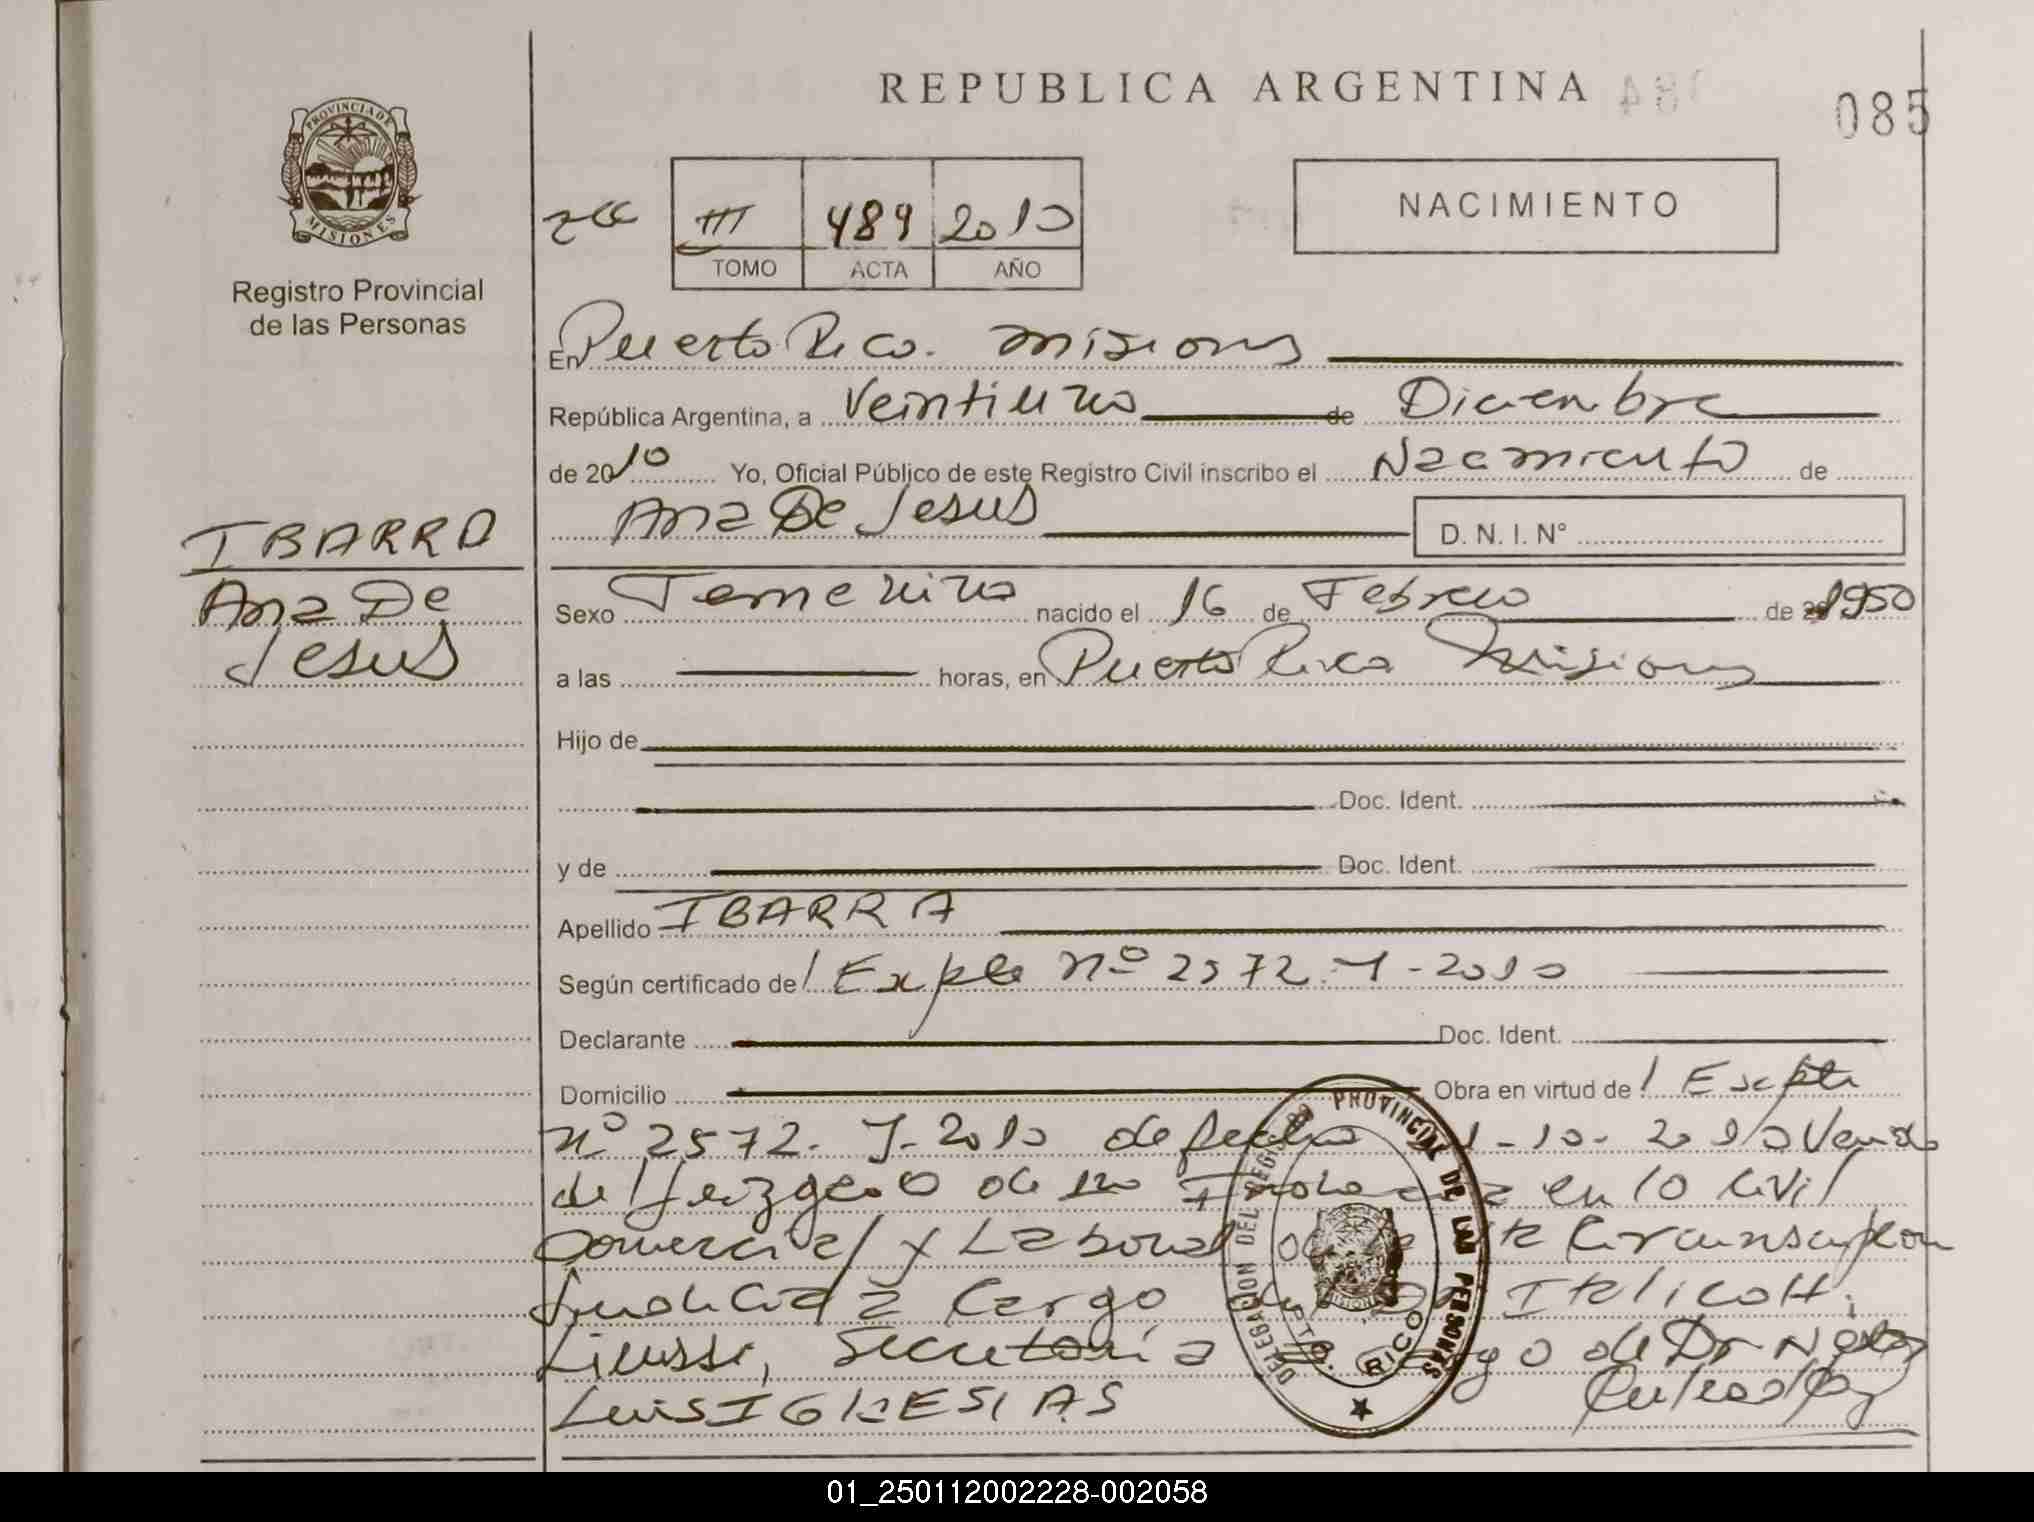 REPUBLICA ARGENTINA
085
PROVINCIA DE
MISIONES
Registro Provincial
de las Personas
III 489 2010
TOMO ACTA AÑO
NACIMIENTO
En Puerto Rico. Misiones
República Argentina, a Veintiuno de Diciembre
de 2010 Yo, Oficial Público de este Registro Civil inscribo el Nacimiento de
Ana De Jesus D. N. I. N°
IBARRA
Ana De
Jesus
Sexo Femenino nacido el 16 de Febrero de 1950
a las horas, en Puerto Rico Misiones
Hijo de
Doc. Ident.
y de Doc. Ident.
Apellido IBARRA
Según certificado de / Expte nº 2572-I-2010
Declarante Doc. Ident.
Domicilio Obra en virtud de / Expte
nº 2572-I-2010 de fecha 1-10-2010
del Juzgado de en lo Civil
Comercial y Laboral Circunscripcion
Judicial a Cargo Italico H.
Secretaría de Dr
Luis IGLESIAS
DELEGACION DEL REGISTRO PROVINCIAL DE LAS PERSONAS
PTO. RICO
01_250112002228-002058